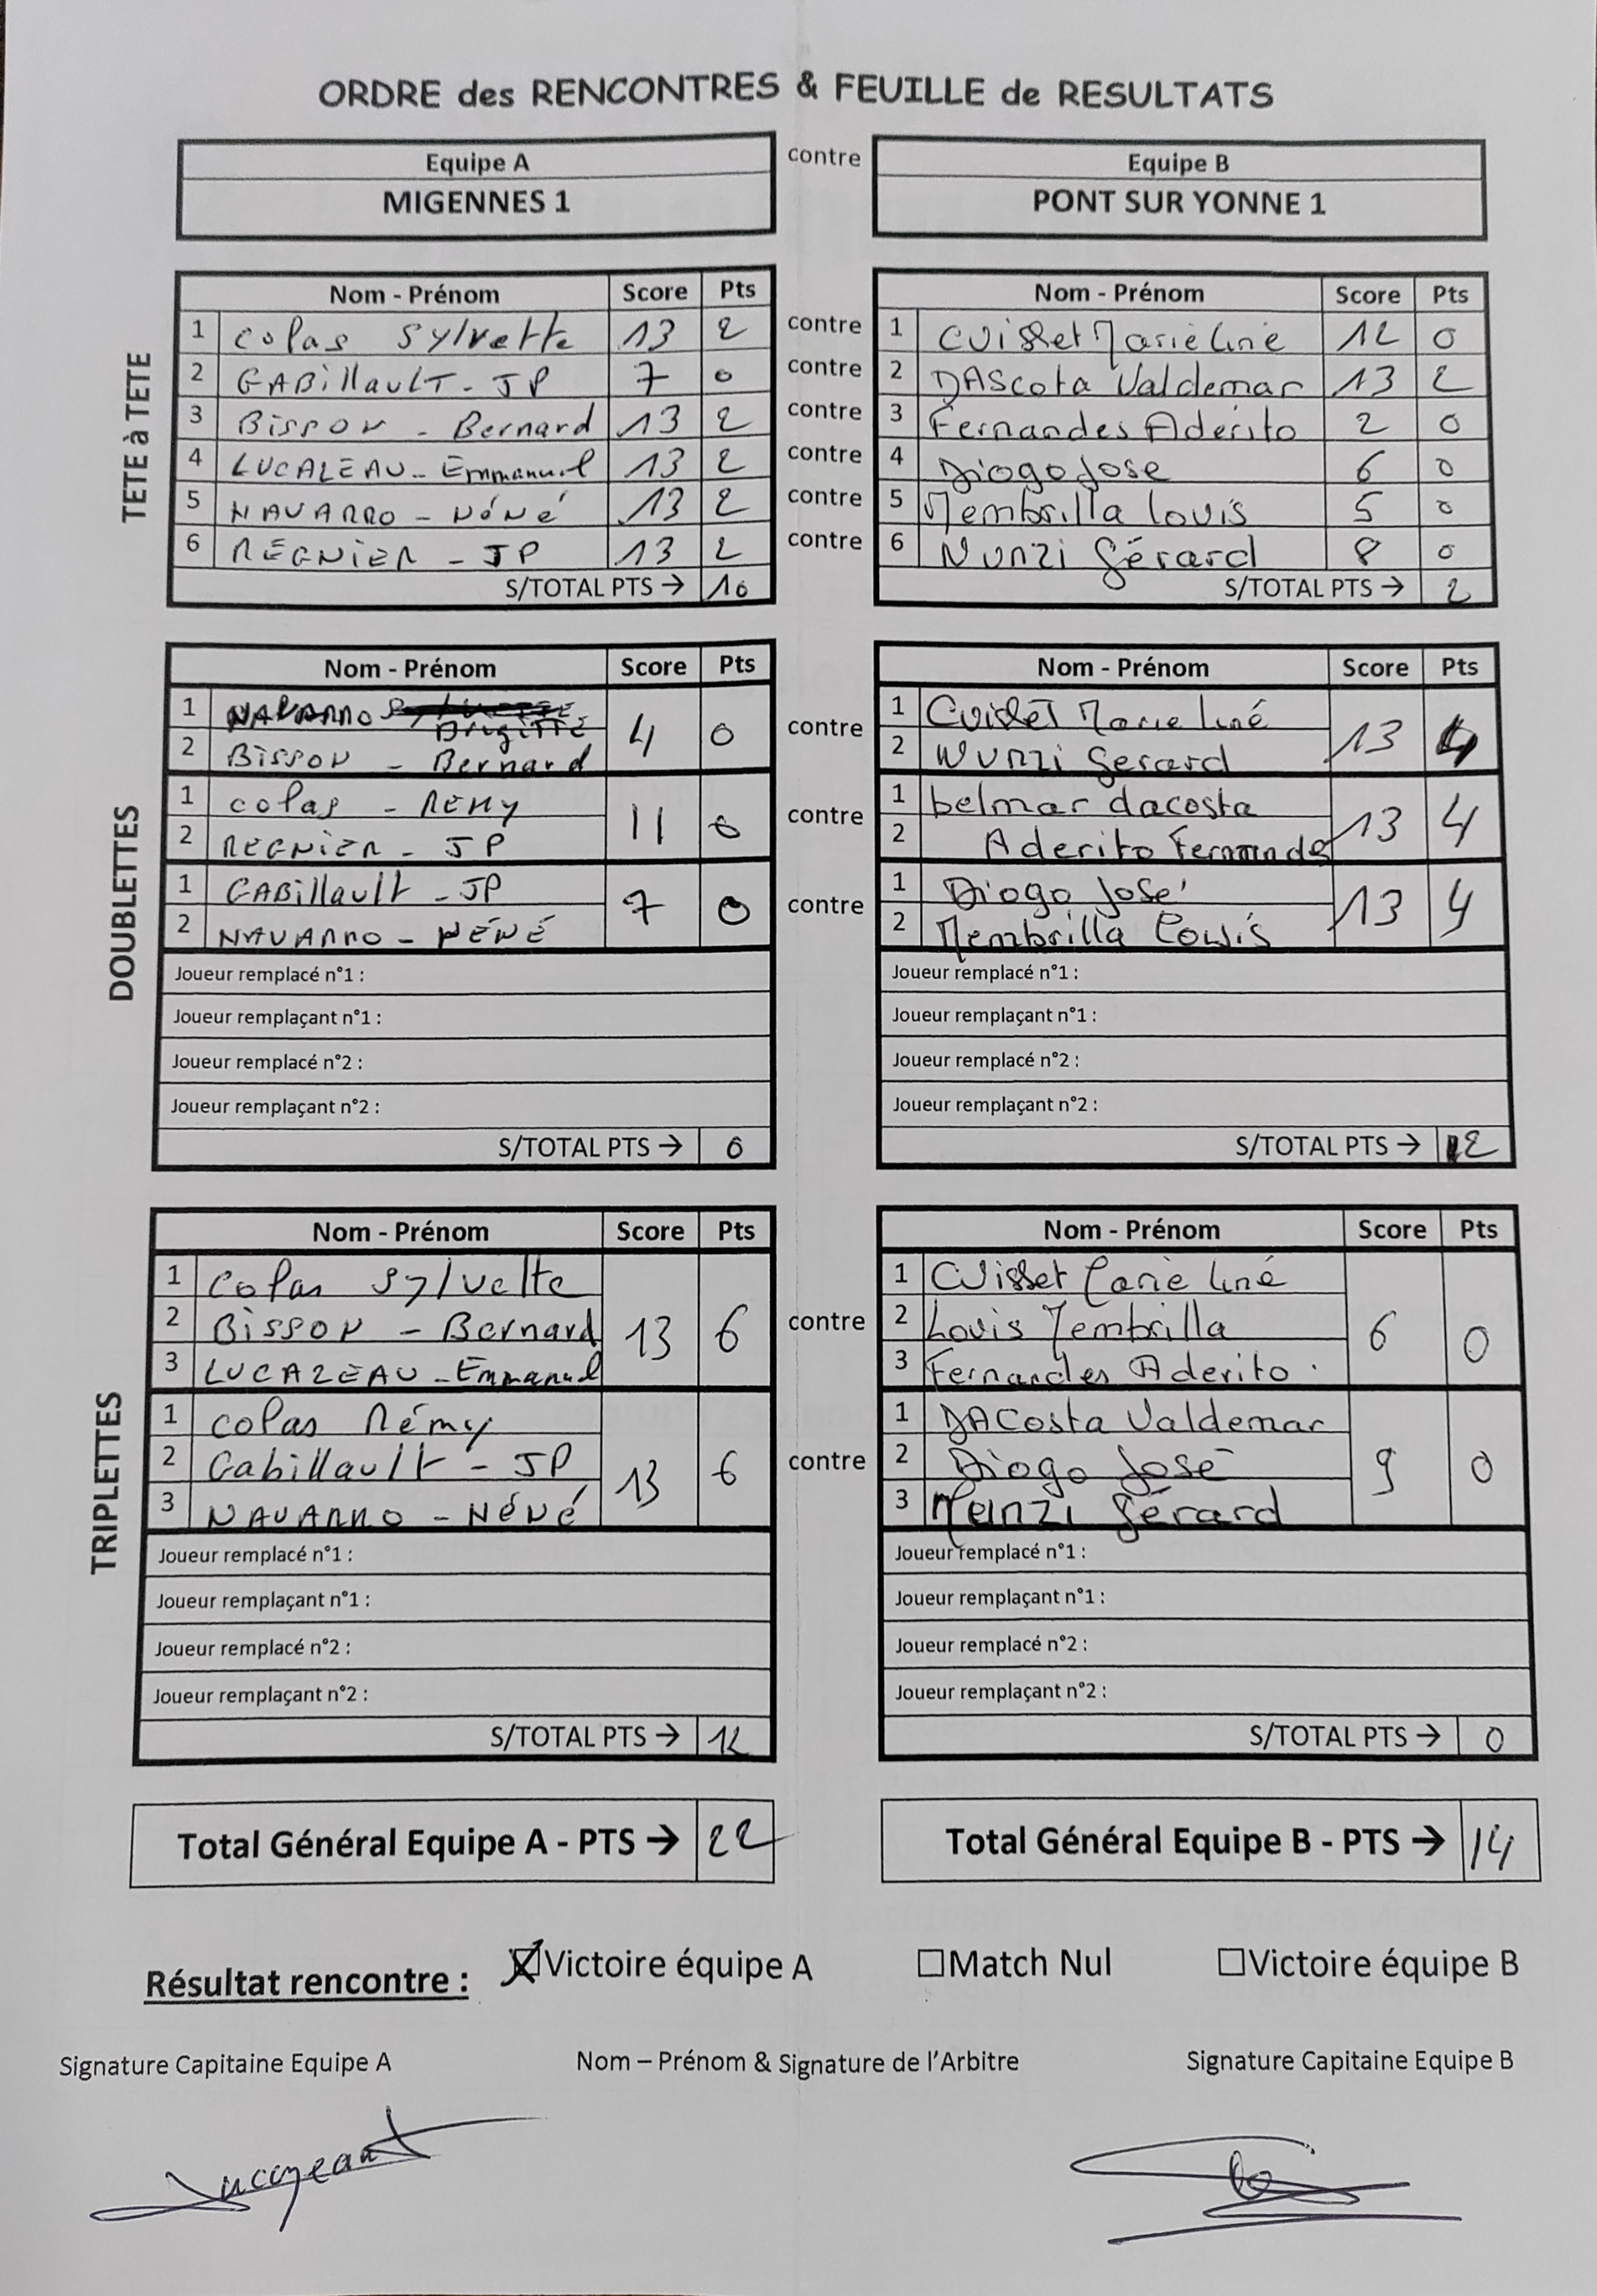 ORDRE des RENCONTRES & FEUILLE de RESULTATS
Equipe A contre Equipe B
MIGENNES 1 PONT SUR YONNE 1
TETE à TETE
Nom - Prénom Score Pts Nom - Prénom Score Pts
1 Colas Sylvette 13 2 contre 1 CUisset Marie Line 12 0
2 GABillaulT - JP 7 0 contre 2 DAScota Valdemar 13 2
3 Bisson - Bernard 13 2 contre 3 Fernandes Aderito 2 0
4 LUCALEAU - Emmanuel 13 2 contre 4 Diogo Jose 6 0
5 NAVARRO - Néné 13 2 contre 5 Membrilla Louis 5 0
6 REGNiER - JP 13 2 contre 6 Nunzi Gérard 8 0
S/TOTAL PTS → 10 S/TOTAL PTS → 2
DOUBLETTES
Nom - Prénom Score Pts Nom - Prénom Score Pts
1 NAVARRO Brigitte 4 0 contre 1 Cuisset Marie Liné 13 4
2 Bisson - Bernard 2 Nunzi Gerard
1 Colas - REMY 11 0 contre 1 belmar dacosta 13 4
2 REGNiER - JP 2 Aderito Fernandes
1 GABillault - JP 7 0 contre 1 Diogo José 13 4
2 NAVARRO - NÉNÉ 2 Membrilla Louis
Joueur remplacé n°1 : Joueur remplacé n°1 :
Joueur remplaçant n°1 : Joueur remplaçant n°1 :
Joueur remplacé n°2 : Joueur remplacé n°2 :
Joueur remplaçant n°2 : Joueur remplaçant n°2 :
S/TOTAL PTS → 0 S/TOTAL PTS → 12
TRIPLETTES
Nom - Prénom Score Pts Nom - Prénom Score Pts
1 Colas Sylvette 13 6 contre 1 CUisset Marie Liné 6 0
2 Bisson - Bernard 2 Louis Membrilla
3 LUCAZEAU - Emmanuel 3 Fernandes Aderito
1 Colas Rémy 13 6 contre 1 DACosta Valdemar 9 0
2 Gabillault - JP 2 Diogo José
3 NAVARRO - Néné 3 Nunzi Gérard
Joueur remplacé n°1 : Joueur remplacé n°1 :
Joueur remplaçant n°1 : Joueur remplaçant n°1 :
Joueur remplacé n°2 : Joueur remplacé n°2 :
Joueur remplaçant n°2 : Joueur remplaçant n°2 :
S/TOTAL PTS → 12 S/TOTAL PTS → 0
Total Général Equipe A - PTS → 22 Total Général Equipe B - PTS → 14
Résultat rencontre : ☒Victoire équipe A ☐Match Nul ☐Victoire équipe B
Signature Capitaine Equipe A Nom – Prénom & Signature de l'Arbitre Signature Capitaine Equipe B